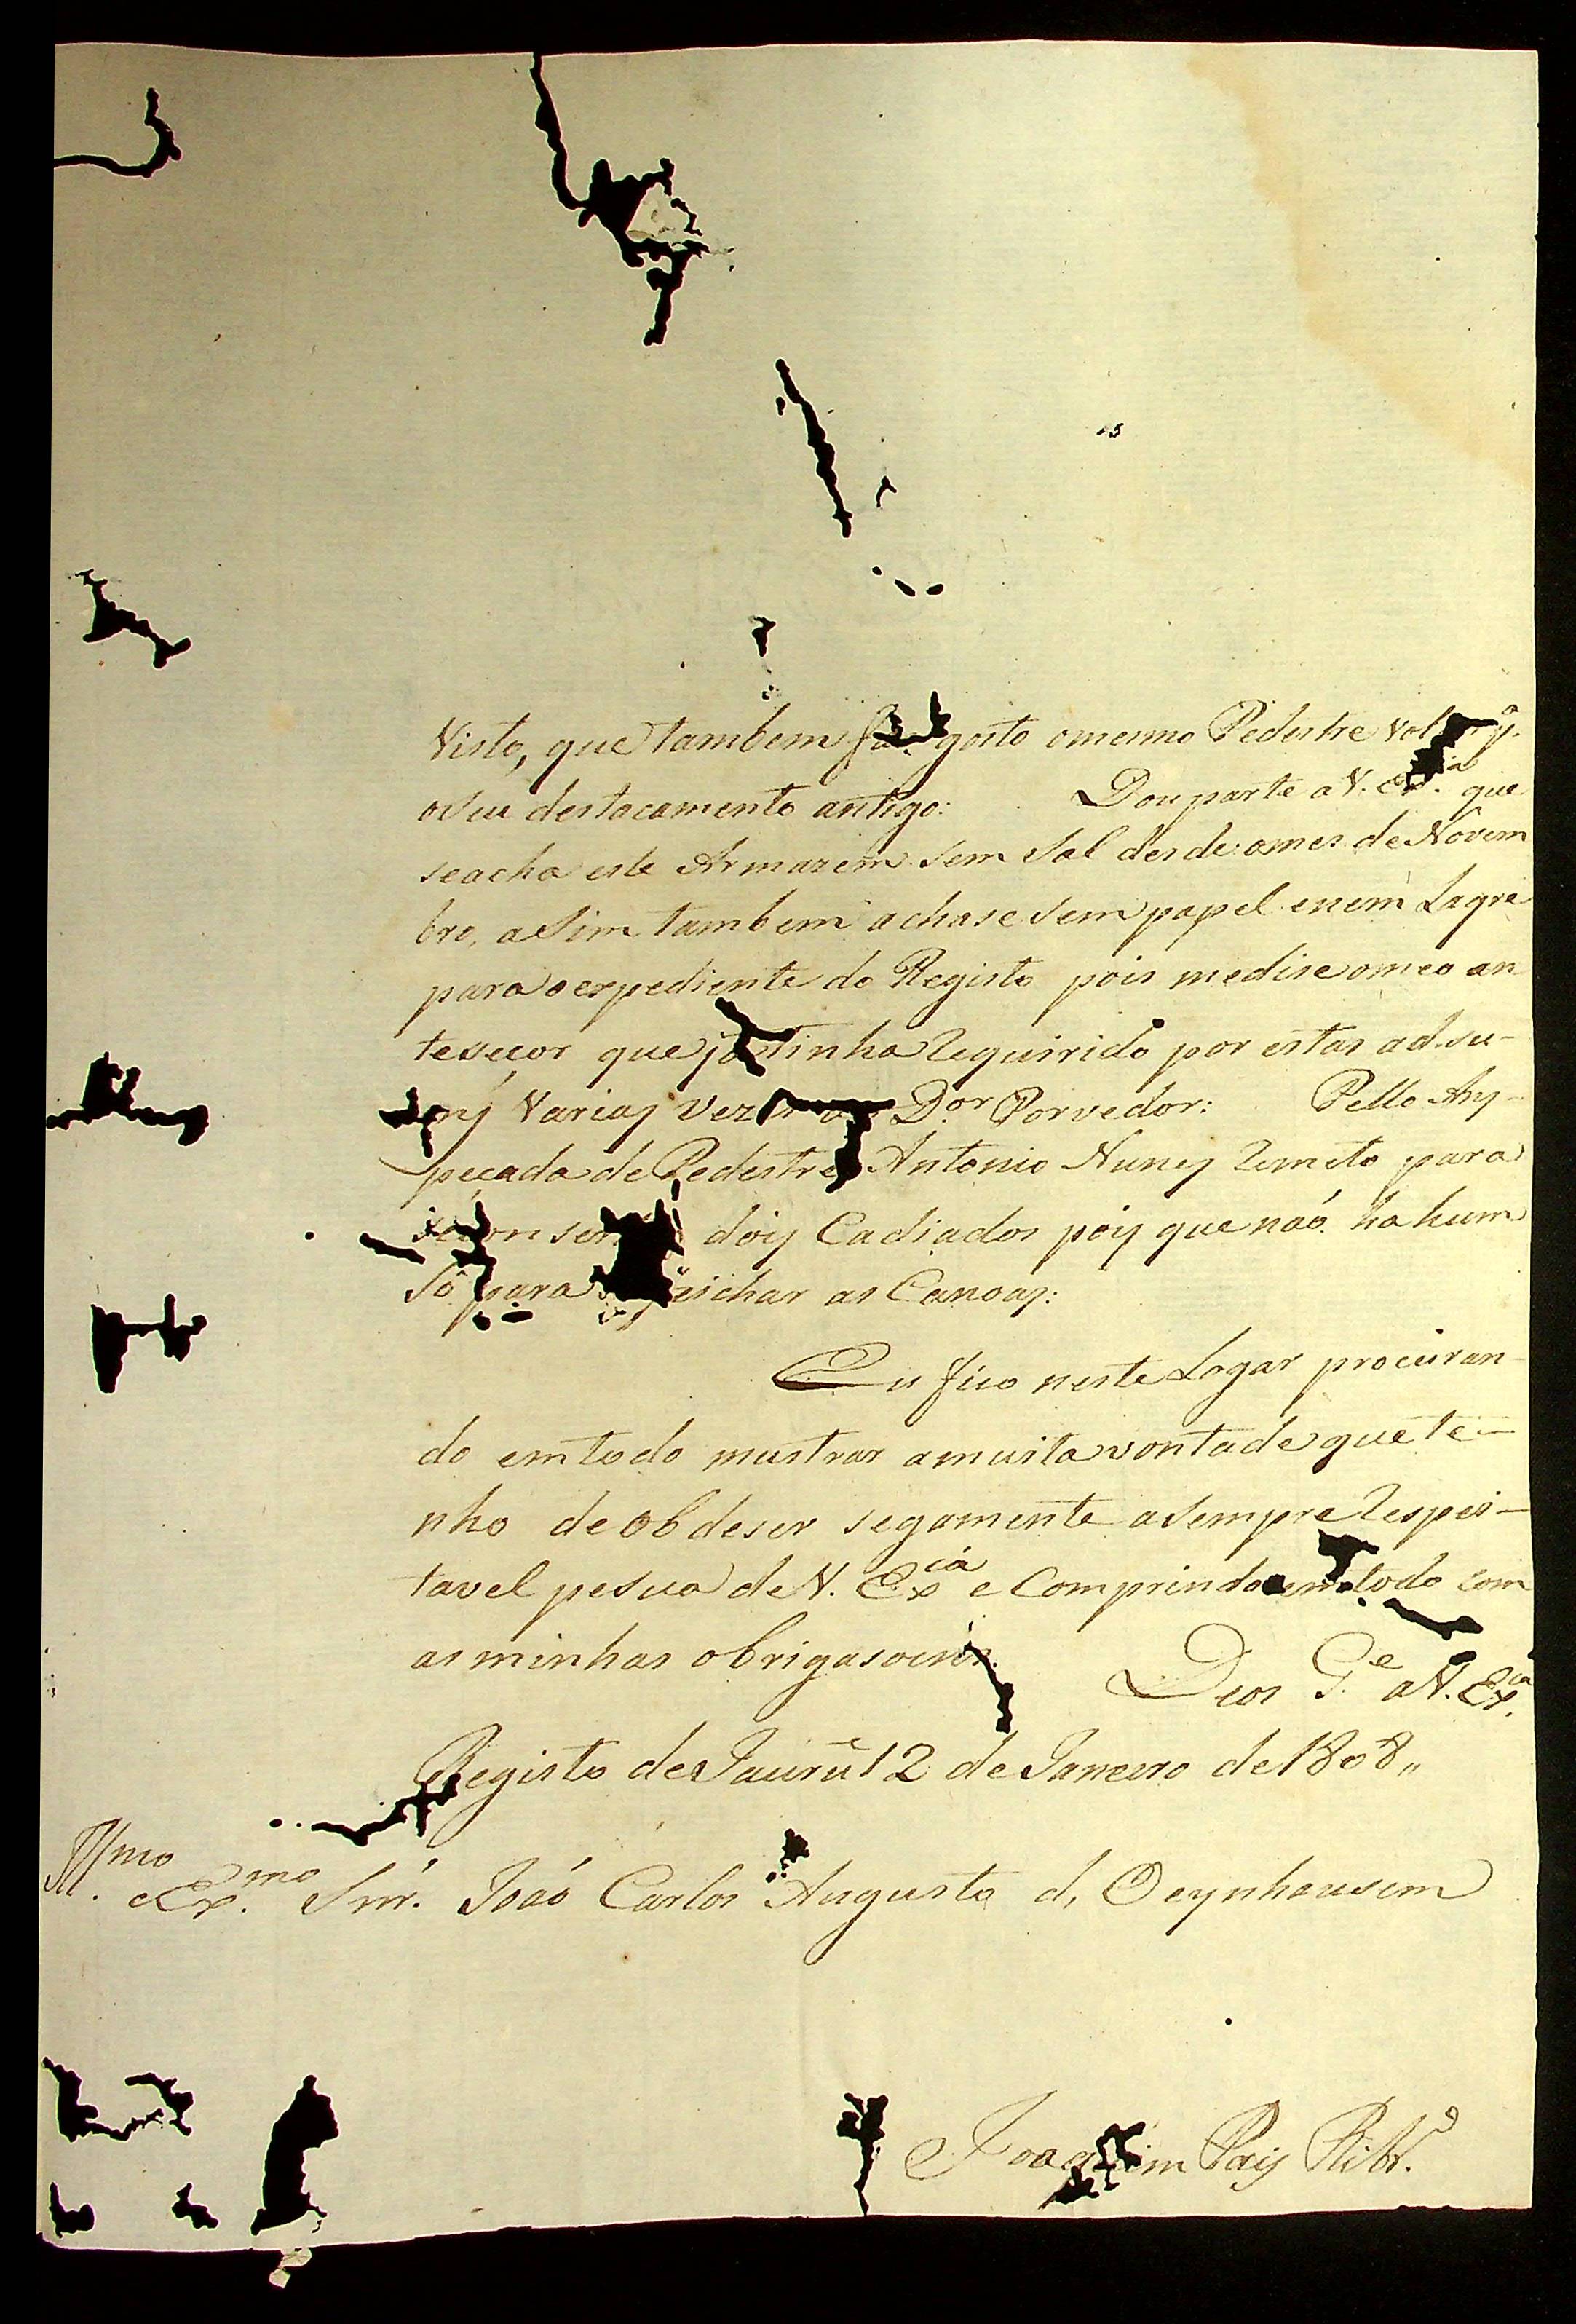 Visto, que tambem gosto omesmo Pedestre
oSeu destacamento antigo: Dou parte aV. Ex.ª que
seacha este Armazem sem Sal desde omes de Novem
bro, aSim tambem achase sem papel enem Lagre
para oexpediente do Registo pois medise omeo an
tesecor que ja tinha Requirido por estas ad.su-
Varias Vezes Dor Porvedor: Pello Ans-
peçada de Pedestres Antonio Nunes Remeto para
dois Cadiados pois que naó ha hum
Só para as Canoas:
Eu fico neste Logar procuran-
do emtodo mustrar amuita vontade que te-
nho de obdeser segamente aSempre Respei-
tavel pesua deV. Excia e Comprindo emtodo com
as minhas obrigasoens. Deos G.e aV. Ex.cia
Registo de Jaurú 12 de Janeiro de 1808,,
Ill.mo
eEx.mo Snr. Joaó Carlos Augusto d, Oeynhausem
Joaquim Pais Ribr.o